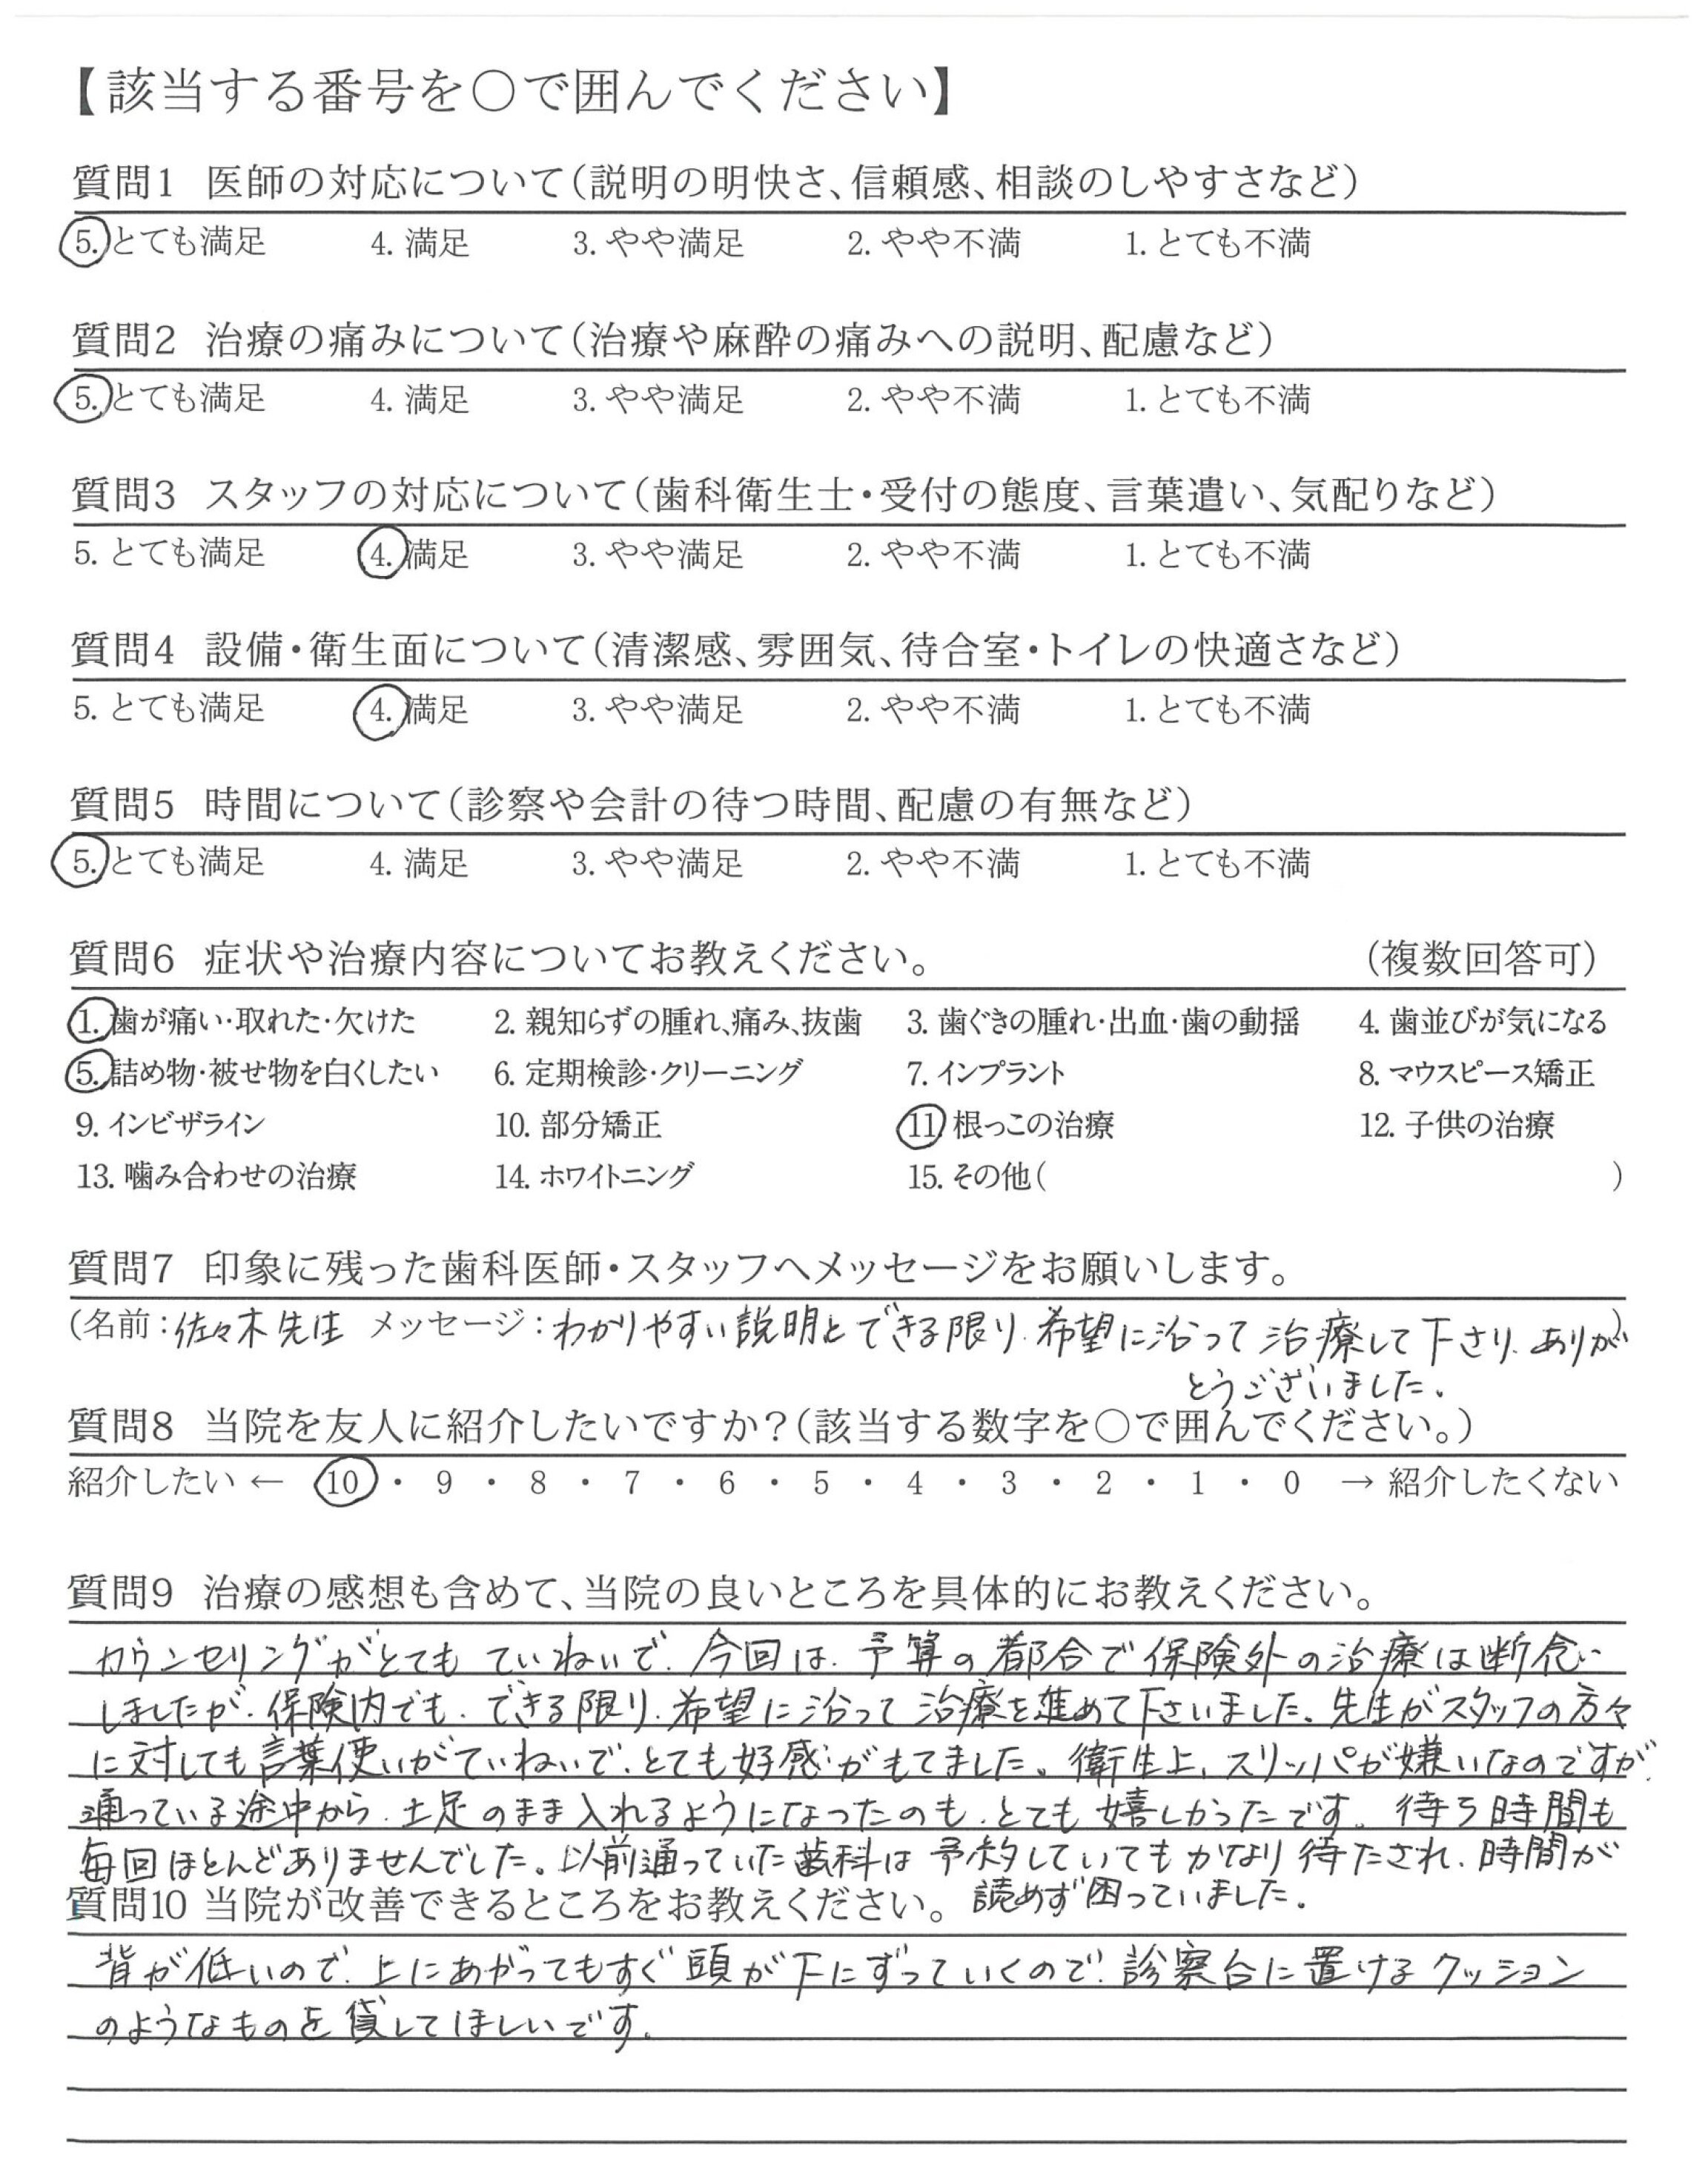 【該当する番号を〇で囲んでください】
質問1 医師の対応について(説明の明快さ、信頼感、相談のしやすさなど)
5. とても満足 4. 満足 3. やや満足 2. やや不満 1. とても不満
質問2 治療の痛みについて(治療や麻酔の痛みへの説明、配慮など)
5. とても満足 4. 満足 3. やや満足 2. やや不満 1. とても不満
質問3 スタッフの対応について(歯科衛生士・受付の態度、言葉遣い、気配りなど)
5. とても満足 4. 満足 3. やや満足 2. やや不満 1. とても不満
質問4 設備・衛生面について(清潔感、雰囲気、待合室・トイレの快適さなど)
5. とても満足 4. 満足 3. やや満足 2. やや不満 1. とても不満
質問5 時間について(診察や会計の待つ時間、配慮の有無など)
5. とても満足 4. 満足 3. やや満足 2. やや不満 1. とても不満
質問6 症状や治療内容についてお教えください。 (複数回答可)
1. 歯が痛い・取れた・欠けた 2. 親知らずの腫れ、痛み、抜歯 3. 歯ぐきの腫れ・出血・歯の動揺 4. 歯並びが気になる
5. 詰め物・被せ物を白くしたい 6. 定期検診・クリーニング 7. インプラント 8. マウスピース矯正
9. インビザライン 10. 部分矯正 11. 根っこの治療 12. 子供の治療
13. 噛み合わせの治療 14. ホワイトニング 15. その他( )
質問7 印象に残った歯科医師・スタッフへメッセージをお願いします。
(名前:佐々木先生 メッセージ:わかりやすい説明とできる限り、希望に沿って治療して下さり、ありが)
とうございました。
質問8 当院を友人に紹介したいですか?(該当する数字を〇で囲んでください。)
紹介したい ← 10 ・ 9 ・ 8 ・ 7 ・ 6 ・ 5 ・ 4 ・ 3 ・ 2 ・ 1 ・ 0 → 紹介したくない
質問9 治療の感想も含めて、当院の良いところを具体的にお教えください。
カウンセリングがとてもていねいで、今回は、予算の都合で保険外の治療は断念
しましたが、保険内でも、できる限り、希望に沿って治療を進めて下さいました。先生がスタッフの方々
に対しても言葉使いがていねいで、とても好感がもてました。衛生上、スリッパが嫌いなのですが、
通っている途中から、土足のまま入れるようになったのも、とても嬉しかったです。待つ時間も
毎回ほとんどありませんでした。以前通っていた歯科は予約していてもかなり待たされ、時間が
読めず困っていました。
質問10 当院が改善できるところをお教えください。
背が低いので、上にあがってもすぐ頭が下にずっていくので、診察台に置けるクッション
のようなものを貸してほしいです。